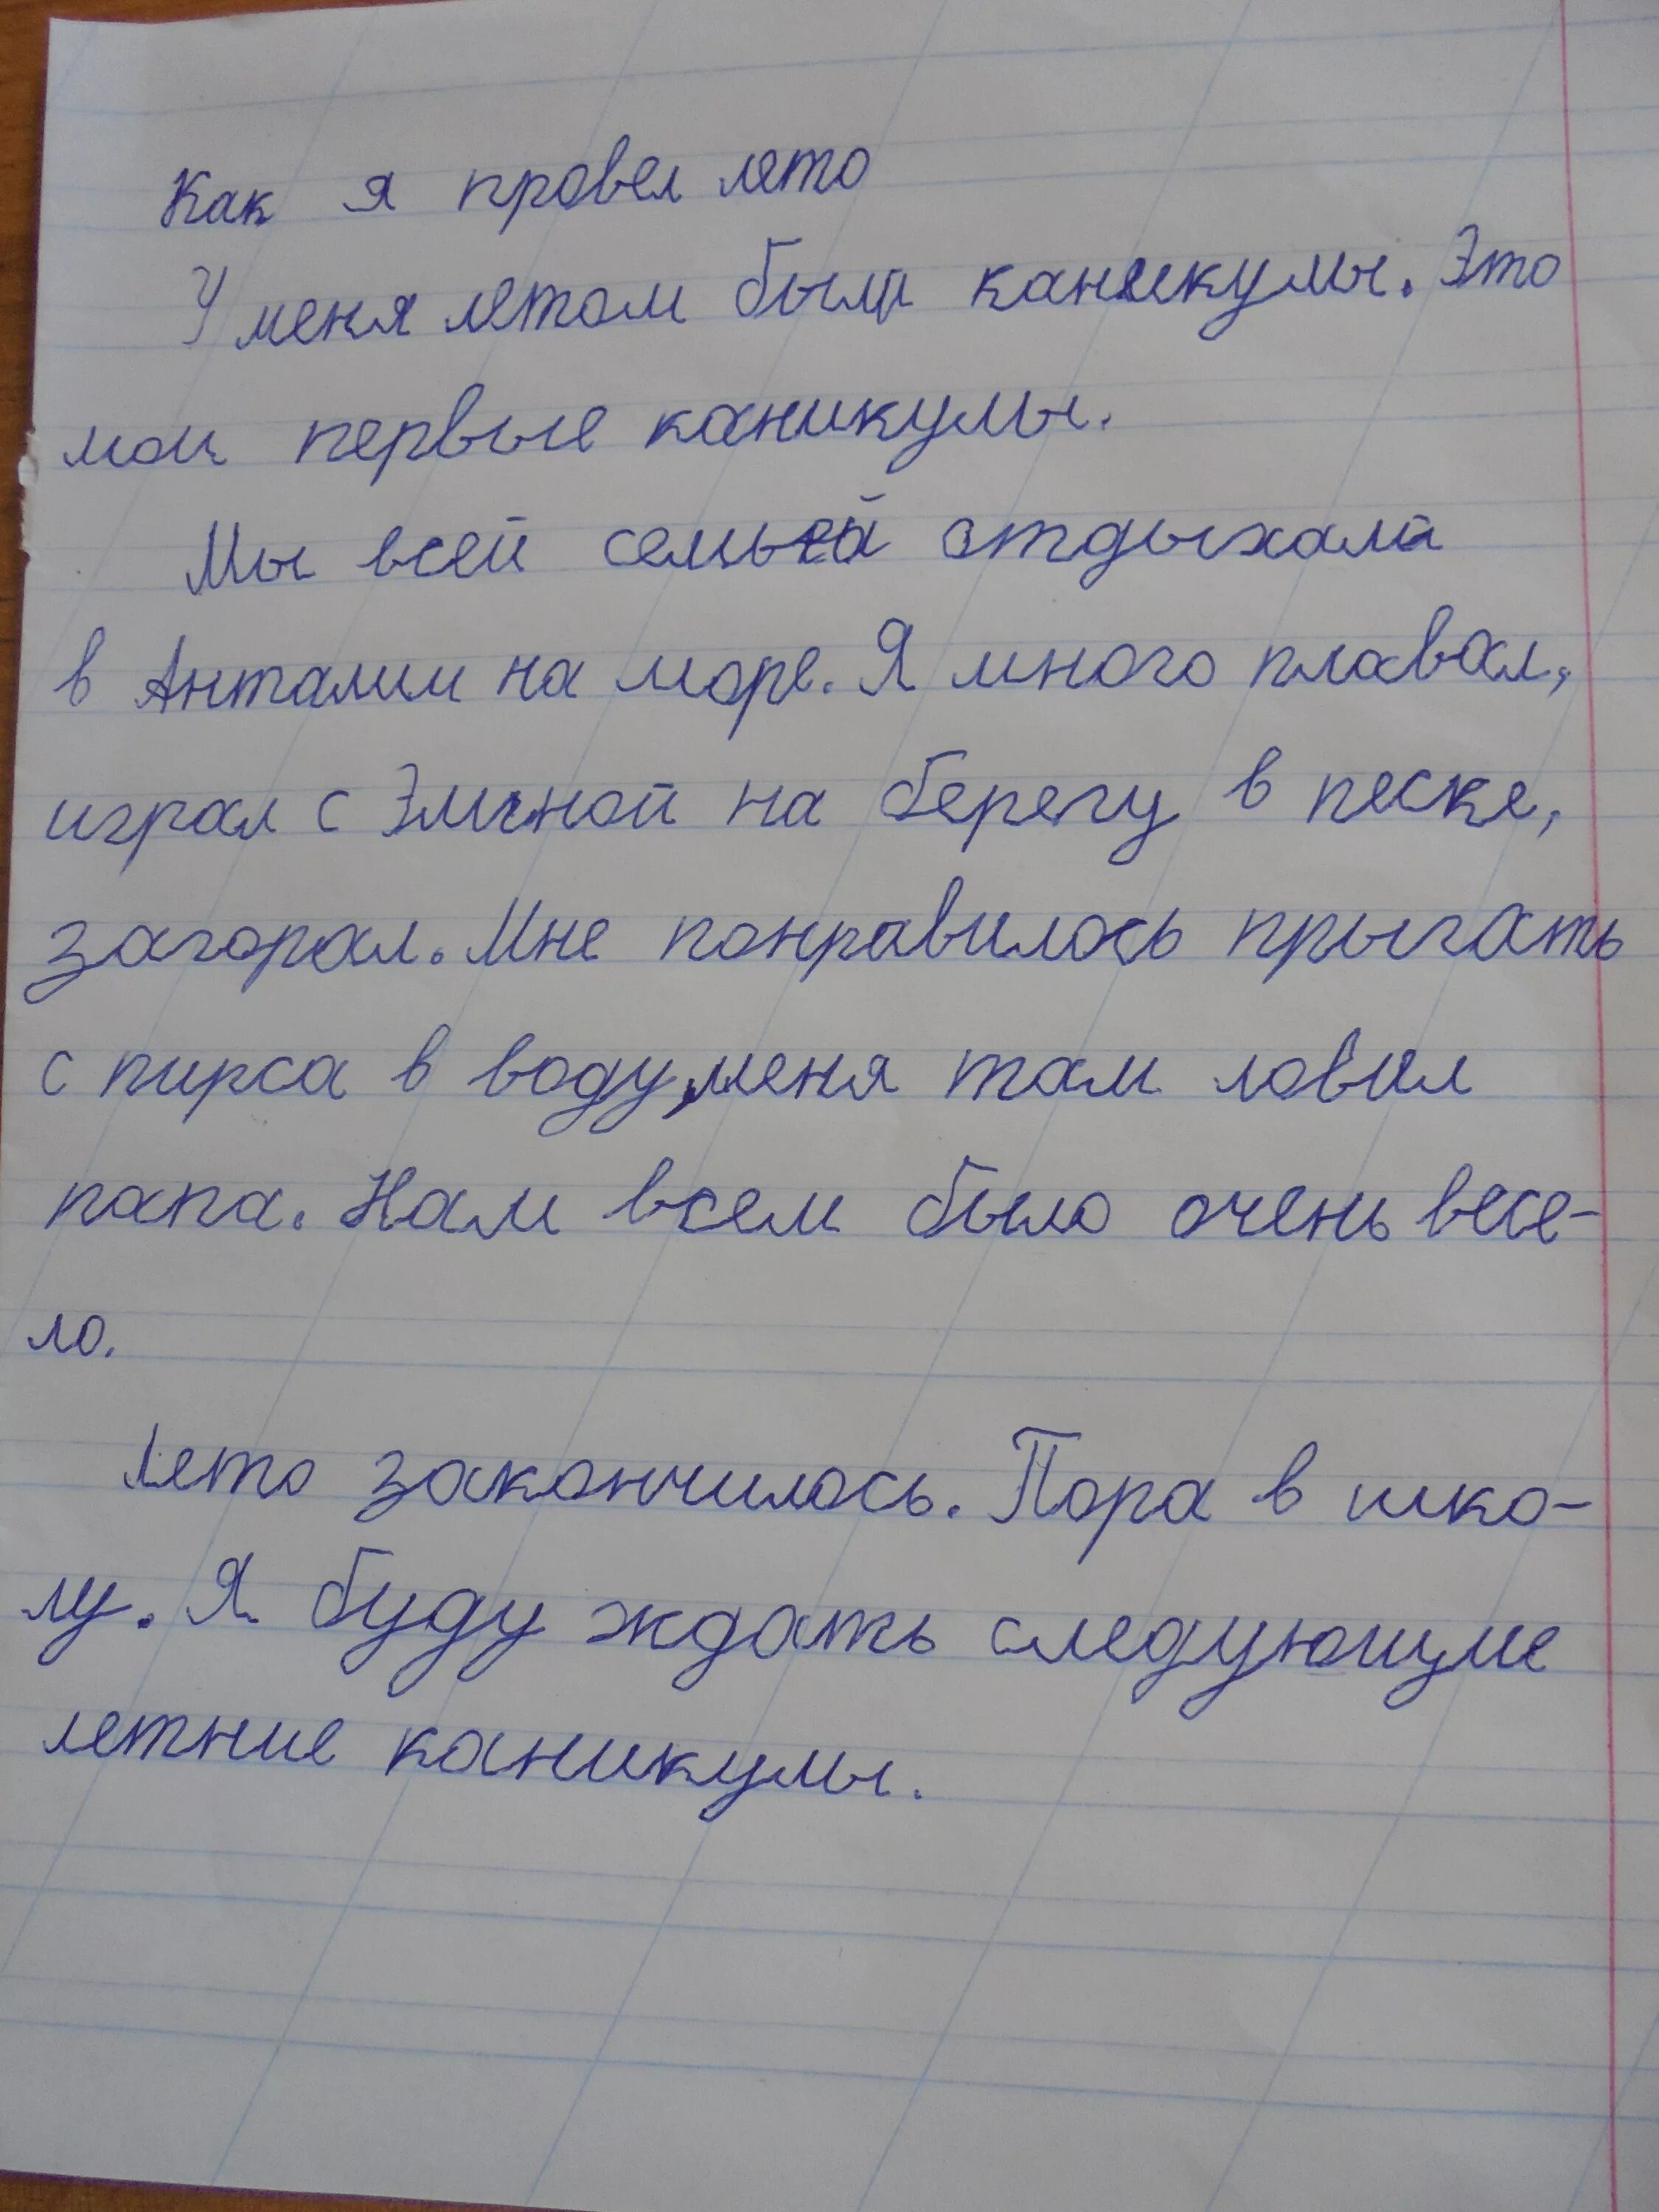 Как я провел лето
У меня летом были каникулы. Это
мои первые каникулы.
Мы всей семьей отдыхали
в Анталии на море. Я много плавал,
играл с Элиной на берегу в песке,
загорал. Мне понравилось прыгать
с пирса в воду, меня там ловил
папа. Нам всем было очень весе-
ло.
Лето закончилось. Пора в шко-
лу. Я буду ждать следующие
летние каникулы.